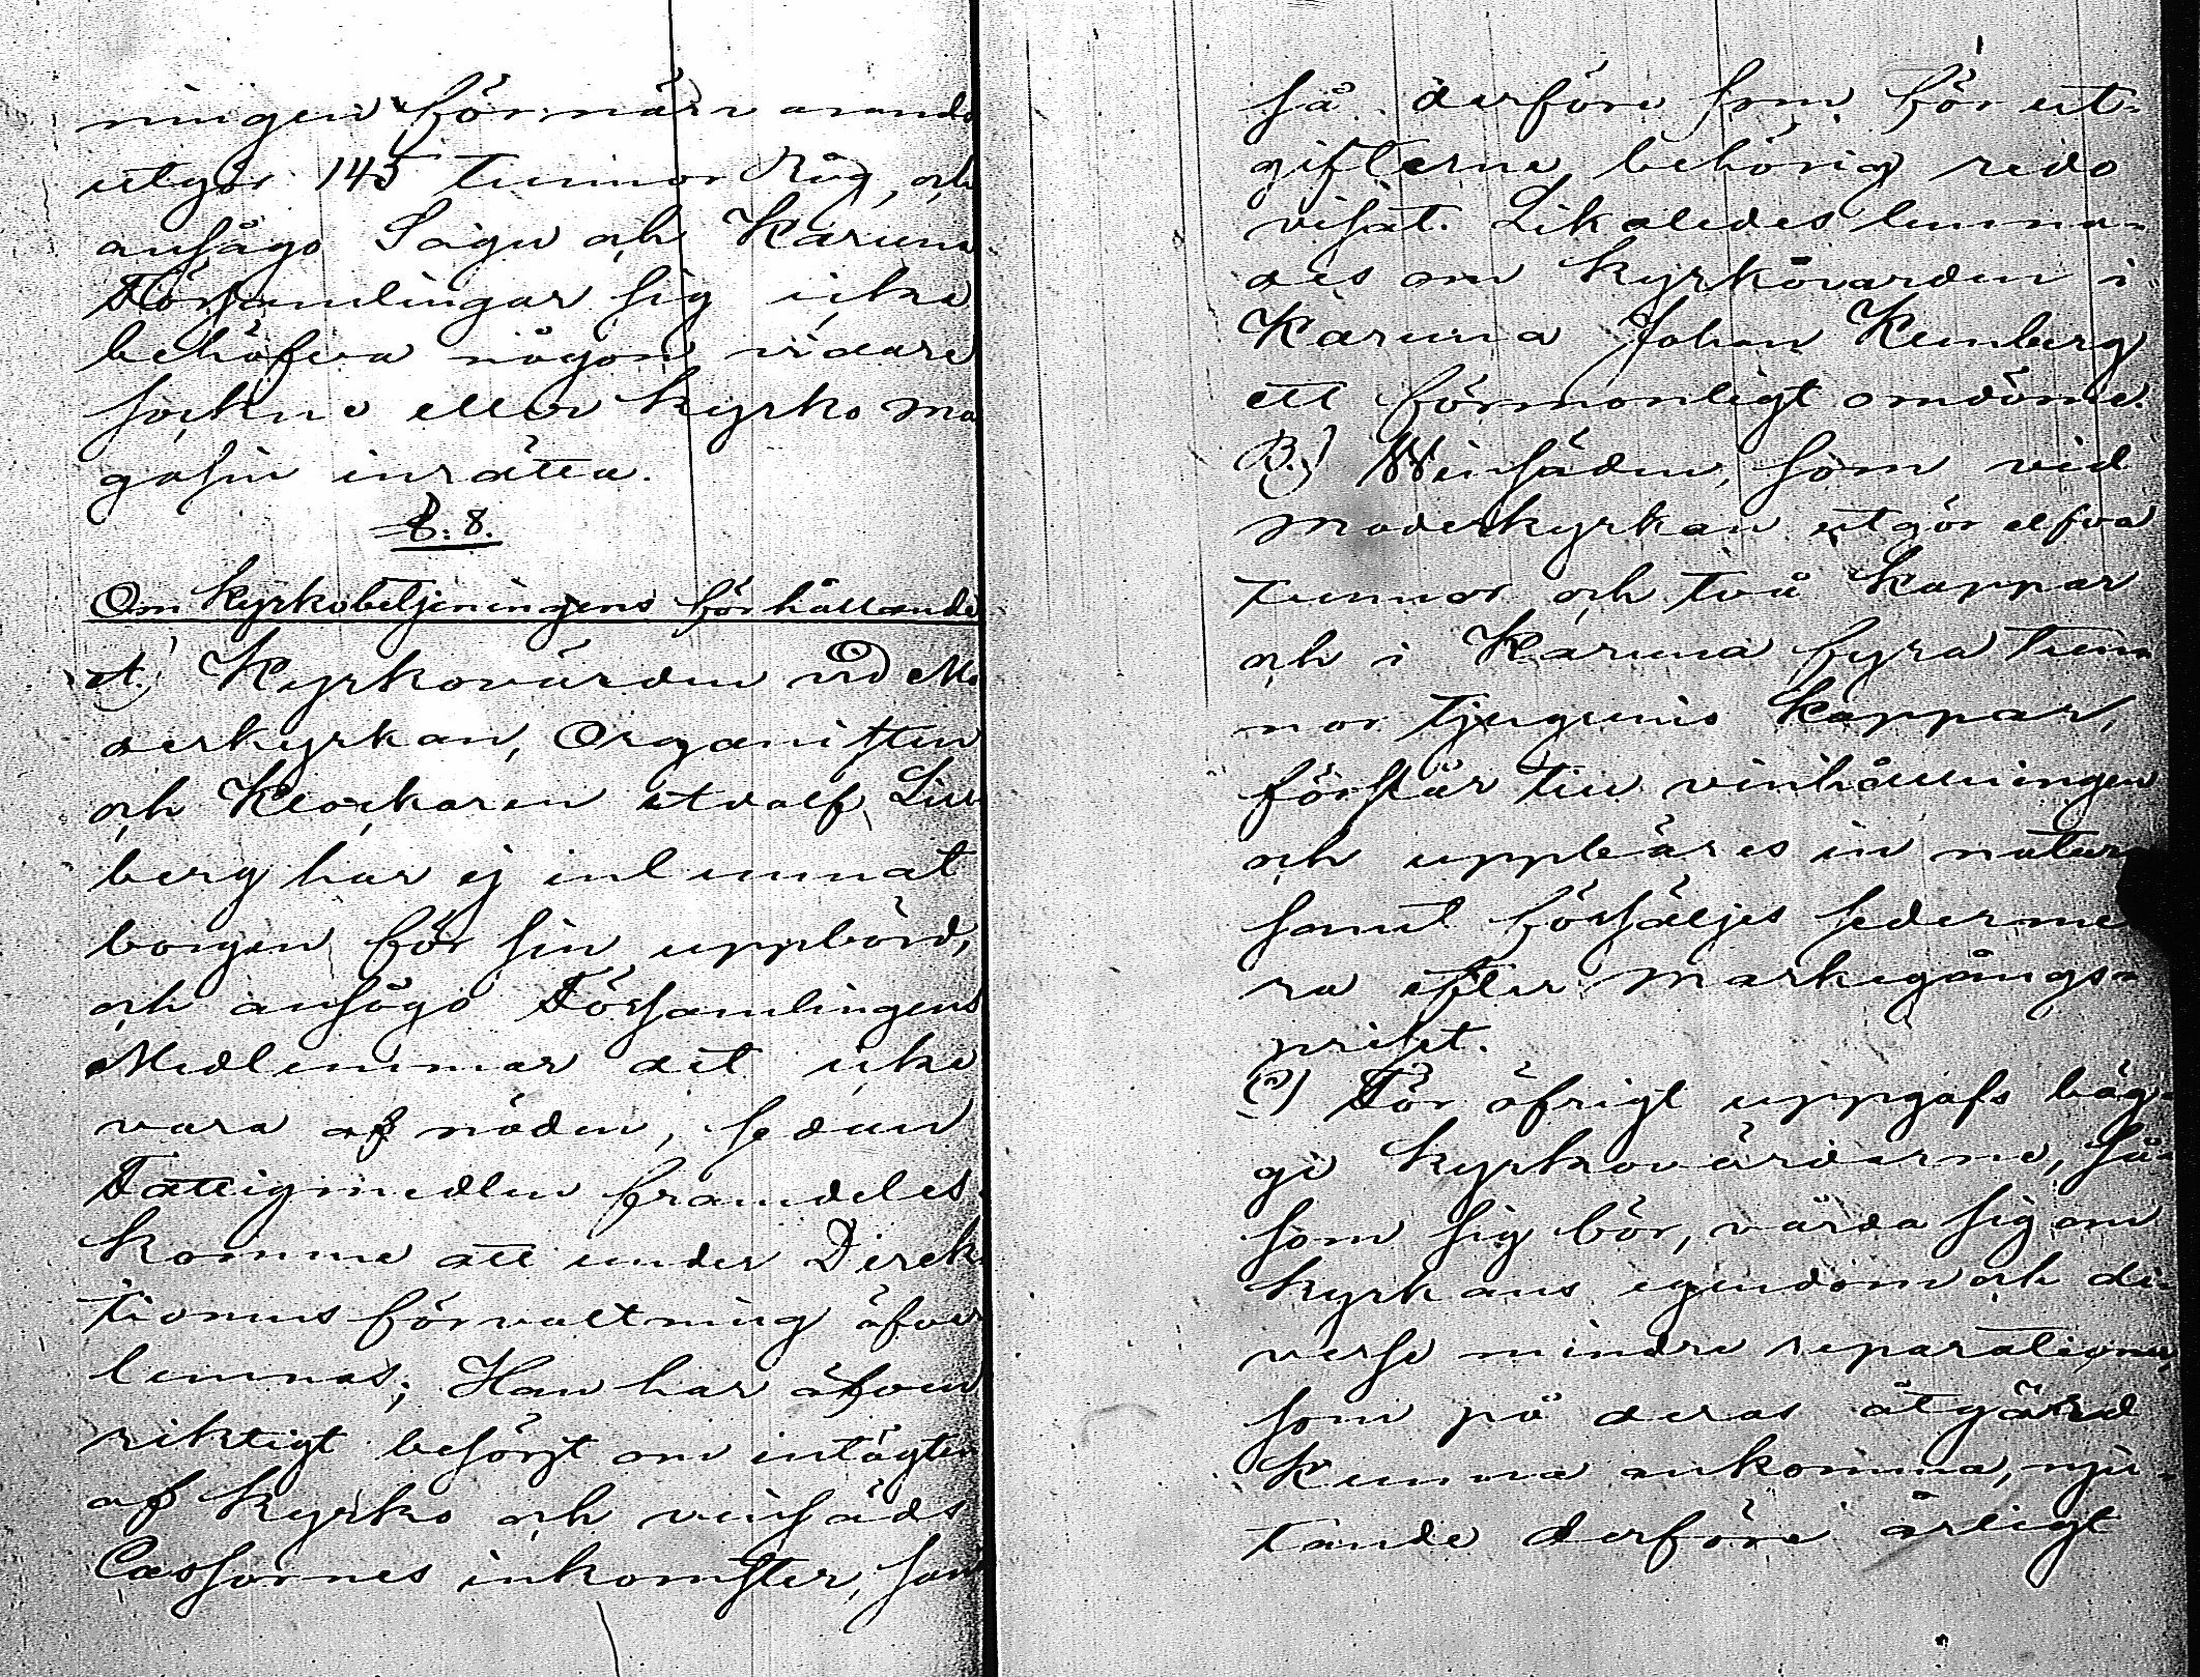 ningen förnärvarande
utgör 145 tunnor Råg, och
ansågo Sagu och Karuna
Församlingar sig icke
behöfva någon vidare
sockne eller kyrko ma
gasin inrätta.
§. 8.
Om kyrkobetjeningens förhållande
A.) Kyrkovärden vid Mo
derkyrkan, Organisten
och Klockaren Adolf Lind
berg har ej inlemnat
borgen för sin uppbörd,
och ansågo Församlingens
Medlemmar det icke
vara af nöden, sedan
Fattigmedlen framdeles
komme att under Direk
tionens förvaltning öfver
lemnas; Han har äfven
riktigt besörjt om intägten
af kyrko och vinsäds
Cassornes inkomster, sam
så derföre som för ut-
gifterne behörig redo
visat. Likaledes lemna-
des om kyrkovärden i
Karuna Johan
ett förmonligt omdöme.
B.) Winsäden, som vid
Moderkyrkan utgör elfva
tunnor och två kappar
och i Karuna fyra tun
nor tjugunio kappar,
förslår till vinhållningen
och uppbäres in natura
samt försäljes sederme
ra efter markegångs-
priset.
C) För öfrigt uppgafs bäg-
ge kyrkovärdarne, så-
som sig bör, vårda sig om
kyrkans egendom och di
verse mindre reparationer,
som på deras åtgärd
kunna ankomma, nju-
tande derföre årligt